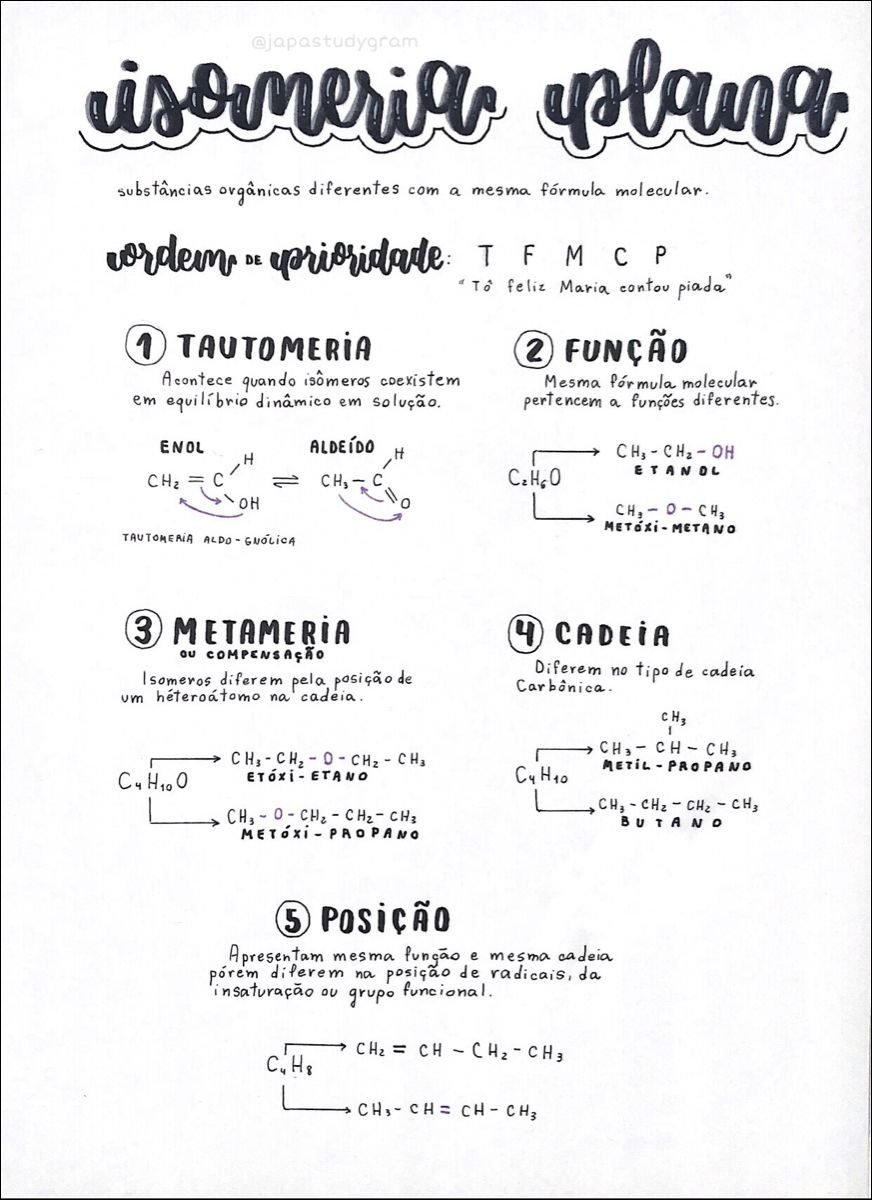 @japastudygram
isomeria plana
substâncias orgânicas diferentes com a mesma fórmula molecular.
ordem DE prioridade: T F M C P
"Tô feliz Maria contou piada"
1 TAUTOMERIA
Acontece quando isômeros coexistem
em equilíbrio dinâmico em solução.
ENOL
ALDEÍDO
H
CH₂ = C
OH
⇌
H
CH₃ – C
O
TAUTOMERIA ALDO-ENÓLICA
2 FUNÇÃO
Mesma fórmula molecular
pertencem a funções diferentes.
C₂H₆O
CH₃ - CH₂ - OH
ETANOL
CH₃ - O - CH₃
METÓXI-METANO
3 METAMERIA
OU COMPENSAÇÃO
Isomeros diferem pela posição de
um héteroátomo na cadeia.
C₄H₁₀O
CH₃ - CH₂ - O - CH₂ - CH₃
ETÓXI-ETANO
CH₃ - O - CH₂ - CH₂ - CH₃
METÓXI-PROPANO
4 CADEIA
Diferem no tipo de cadeia
Carbônica.
C₄H₁₀
CH₃
CH₃ - CH - CH₃
METIL-PROPANO
CH₃ - CH₂ - CH₂ - CH₃
BUTANO
5 POSIÇÃO
Apresentam mesma função e mesma cadeia
pórem diferem na posição de radicais, da
insaturação ou grupo funcional.
C₄H₈
CH₂ = CH - CH₂ - CH₃
CH₃ - CH = CH - CH₃